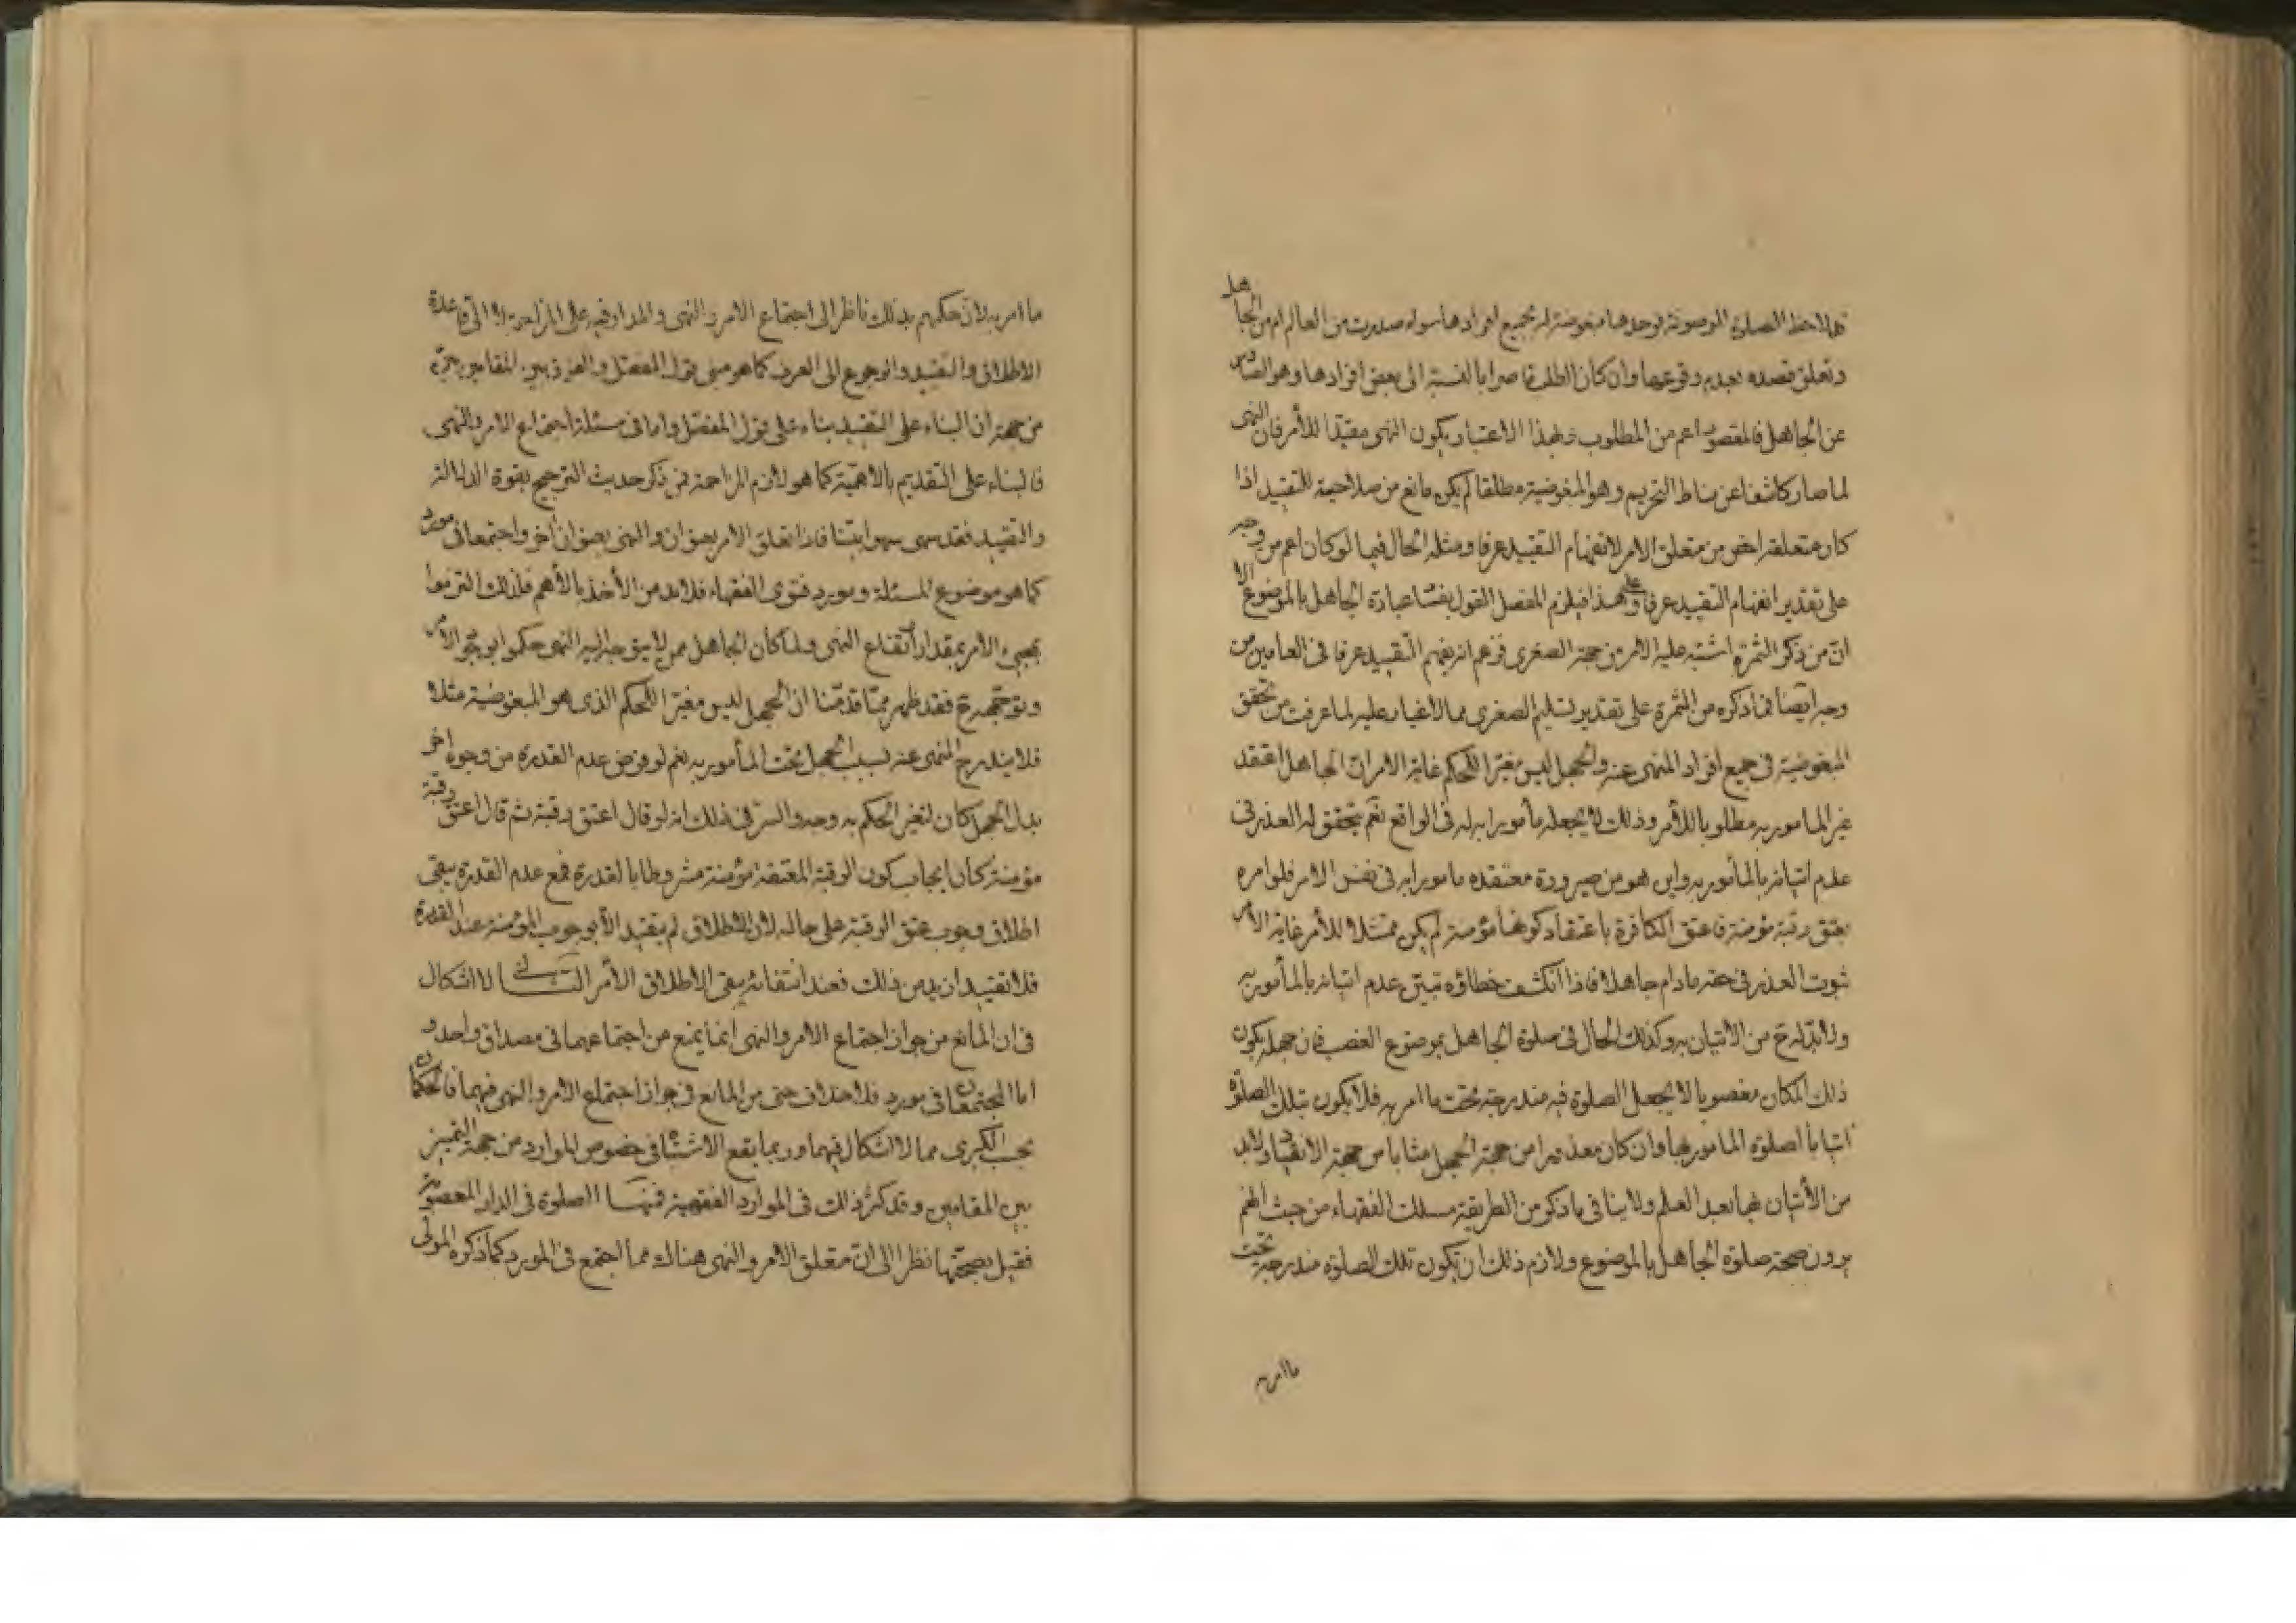 فلاحظ الصلوة الموصوفة فوجدها مبغوضة له بجميع افرادها سواء صدرت من العالم ام من الجاهل
وتعلق قصده بعدم وقوعها وان كان الطلب قاصرا بالنسبة الى بعض افرادها وهو الصادر
عن الجاهل فالمقصود اعم من المطلوب وبهذا الاعتبار يكون النهى مقيدا للأمر فان النهى
لما صار كاشفا عن مناط التحريم وهو المبغوضية مطلقا لم يكن مانع من صلاحية للتقييد اذا
كان متعلقه اخص من متعلق الامر لانفهام التقييد عرفا ومثله الحال فيما لو كان اعم من وجه
على تقدير انفهام التقييد عرفا وعلى هذا فيلزم المفصل القول بفساد عبادة الجاهل بالموضوع الا
انّ من ذكر الثمرة اشتبه عليه الامر من جهة الصغرى فزعم انه يفهم التقييد عرفا فى العامين من
وجه ايضا فما ذكره من الثمرة على تقدير تسليم الصغرى مما لا غبار عليه لما عرفت من تحقق
المبغوضية فى جميع افراد المنهى عنه والجهل ليس مغيرا للحكم غاية الامر ان الجاهل اعتقد
غير المامور به مطلوبا للأمر وذلك لا يجعله مأمورا به له فى الواقع نعم يتحقق له العذر فى
عدم اتيانه بالمأمور به واين هو من صيرورة معتقده مامورا به فى نفس الامر فلو امره
بعتق رقبة مؤمنة فاعتق الكافرة باعتقاد كونها مؤمنة لم يكن ممتثلا للأمر غاية الامر
ثبوت العذر فى حقه مادام جاهلا فاذا انكشف خطاؤه تبين عدم اتيانه بالمأمور به
ولا بدّ له ح من الاتيان به وكذلك الحال فى صلوة الجاهل بموضوع الغصب فان جهله بكون
ذلك المكان مغصوبا لا يجعل الصلوة فيه مندرجة تحت ما امر به فلا يكون بتلك الصلوة
اتيا بالصلوة المامور بها وان كان معذورا من جهة الجهل مثابا من جهة الانقياد ولا بد
من الأتيان بها بعد العلم ولا ينافى ما ذكر من الطريقة مسلك الفقهاء من حيث انهم
يرون صحة صلوة الجاهل بالموضوع ولازم ذلك ان تكون تلك الصلوة مندرجة تحت
ما امر به
ما امر به لانّ حكمهم بذلك ناظر الى اجتماع الامر والنهى والمدار فيه على المزاحمة لا الى قاعدة
الاطلاق والتقييد والرجوع الى العرف كما هو مبنى قول المفصل والفرق بين المقامين
من جهة ان البناء على التقييد بناء على قول المفصل واما فى مسئلة اجتماع الامر والنهى
فالبناء على التقديم بالاهمية كما هو لازم المزاحمة فمن ذكر حديث الترجيح بقوة الدلالة
والتقييد فقد سهى سهوا بينا فاذا تعلق الامر بعنوان والنهى بعنوان أخر واجتمعا فى مورد
كما هو موضوع المسئلة ومورد فتوى الفقهاء فلا بد من الأخذ بالأهم فلذلك التزموا
بمجيء الامر بمقدار ارتفاع النهى ولما كان الجاهل ممن لا يتوجه اليه النهى حكموا بوجود الامر
وتوجهه ح فقد ظهر مما قدمنا ان الجهل ليس مغيرا للحكم الذى هو المبغوضية مثلا
فلا يندرج المنهى عنه بسبب الجهل تحت المأمور به نعم لو فرض عدم القدرة من وجوه اخر
بدل الجهل كان لتغير الحكم به وجه والسر فى ذلك انه لو قال اعتق رقبة ثم قال اعتق رقبة
مؤمنة كان ايجاب كون الرقبة المعتقة مؤمنة مشروطا بالقدرة فمع عدم القدرة يبقى
اطلاق وجوب عتق الرقبة على حاله لان الاطلاق لم يقيد الّا بوجوب المؤمنة عند القدرة
فلا تقييد ازيد من ذلك فعند انتفائه يبقى الاطلاق الأمر الثانى لا اشكال
فى ان المانع من جواز اجتماع الامر والنهى انما يمنع من اجتماعهما فى مصداق واحد و
اما المجتمعان فى مورد فلا خلاف حتى من المانع فى جواز اجتماع الامر والنهى فيهما فالحكمان
بحسب الكبرى مما لا اشكال فيهما وربما يقع الاشتباه فى خصوص الموارد من جهة التميز
بين المقامين وقد كثر ذلك فى الموارد الفقهية فمنها الصلوة فى الدار المغصوبة
فقيل بصحتها نظرا الى انّ متعلق الامر والنهى هناك مما اجتمع فى المورد كما ذكره المولى